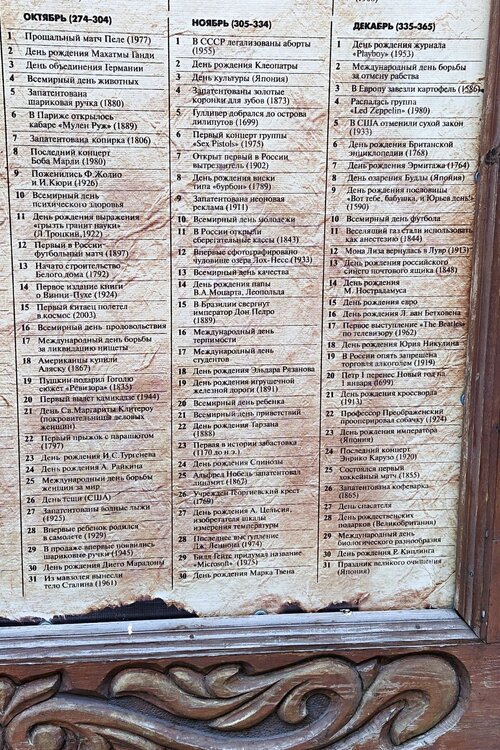 ОКТЯБРЬ (274-304)
1 Прощальный матч Пеле (1977)
2 День рождения Махатмы Ганди
3 День объединения Германии
4 Всемирный день животных
5 Запатентована
шариковая ручка (1880)
6 В Париже открылось
кабаре «Мулен Руж» (1889)
7 Запатентована копирка (1806)
8 Последний концерт
Боба Марли (1980)
9 Поженились Ф.Жолио
и И.Кюри (1926)
10 Всемирный день
психического здоровья
11 День рождения выражения
«грызть гранит науки»
(Л.Троцкий,1922)
12 Первый в России
футбольный матч (1897)
13 Начато строительство
Белого дома (1792)
14 Первое издание книги
о Винни-Пухе (1924)
15 Первый китаец полетел
в космос (2003)
16 Всемирный день продовольствия
17 Международный день борьбы
за ликвидацию нищеты
18 Американцы купили
Аляску (1867)
19 Пушкин подарил Гоголю
сюжет «Ревизора» (1835)
20 Первый вылет камикадзе (1944)
21 День Св.Маргариты Клитероу
(покровительницы деловых
женщин)
22 Первый прыжок с парашютом
(1797)
23 День рождения И.С.Тургенева
24 День рождения А. Райкина
25 Международный день борьбы
женщин за мир
26 День тещи (США)
27 Запатентованы водные лыжи
(1925)
28 Впервые ребенок родился
в самолете (1929)
29 В продаже впервые появились
шариковые ручки (1945)
30 День рождения Диего Марадоны
31 Из мавзолея вынесли
тело Сталина (1961)
НОЯБРЬ (305-334)
1 В СССР легализованы аборты
(1955)
2 День рождения Клеопатры
3 День культуры (Япония)
4 Запатентованы золотые
коронки для зубов (1873)
5 Гулливер добрался до острова
лилипутов (1699)
6 Первый концерт группы
«Sex Pistols» (1975)
7 Открыт первый в России
вытрезвитель (1902)
8 День рождения виски
типа «бурбон» (1789)
9 Запатентована неоновая
реклама (1911)
10 Всемирный день молодежи
11 В России открыли
сберегательные кассы (1843)
12 Впервые сфотографировано
чудовище озера Лох-Несс (1933)
13 Всемирный день качества
14 День рождения папы
В.А.Моцарта, Леопольда
15 В Бразилии свергнут
император Дон Педро
(1889)
16 Международный день
терпимости
17 Международный день
студентов
18 День рождения Эльдара Рязанова
19 День рождения игрушечной
железной дороги (1891)
20 Всемирный день ребенка
21 Всемирный день приветствий
22 День рождения Тарзана
(1888)
23 Первая в истории забастовка
(1170 до н.э.)
24 День рождения Спинозы
25 Альфред Нобель запатентовал
динамит (1867)
26 Учрежден Георгиевский крест
(1769)
27 День рождения А. Цельсия,
изобретателя шкалы
измерения температуры
28 Последнее выступление
Дж. Леннона (1974)
29 Билл Гейтс придумал название
«Microsoft» (1975)
30 День рождения Марка Твена
ДЕКАБРЬ (335-365)
1 День рождения журнала
«Playboy» (1953)
2 Международный день борьбы
за отмену рабства
3 В Европу завезли картофель (1586)
4 Распалась группа
«Led Zeppelin» (1980)
5 В США отменили сухой закон
(1933)
6 День рождения Британской
энциклопедии (1768)
7 День рождения Эрмитажа (1764)
8 День озарения Будды (Япония)
9 День рождения пословицы
«Вот тебе, бабушка, и Юрьев день!»
(1590)
10 Всемирный день футбола
11 Веселящий газ стали использовать
как анестезию (1844)
12 Мона Лиза вернулась в Лувр (1913)
13 День рождения российского
синего почтового ящика (1848)
14 День рождения
М. Нострадамуса
15 День рождения евро
16 День рождения Л. ван Бетховена
17 Первое выступление «The Beatles»
по телевизору (1962)
18 День рождения Юрия Никулина
19 В России опять запрещена
торговля алкоголем (1919)
20 Петр I перенес Новый год на
1 января (1699)
21 День рождения кроссворда
(1913)
22 Профессор Преображенский
прооперировал собачку (1924)
23 День рождения императора
(Япония)
24 Последний концерт
Энрико Карузо (1920)
25 Состоялся первый
хоккейный матч (1855)
26 Запатентована кофеварка
(1865)
27 День спасателя
28 День рождественских
подарков (Великобритания)
29 Международный день
биологического разнообразия
30 День рождения Р. Киплинга
31 Праздник великого очищения
(Япония)